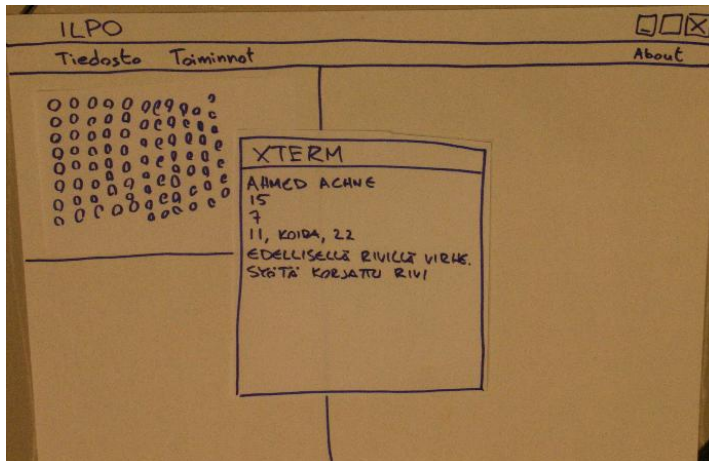 ILPO
Tiedosto Toiminnot About
XTERM
AHMED ACHNE
15
7
11, KOIRA, 22
EDELLISELLÄ RIVILLÄ VIRHE.
SYÖTÄ KORJATTU RIVI